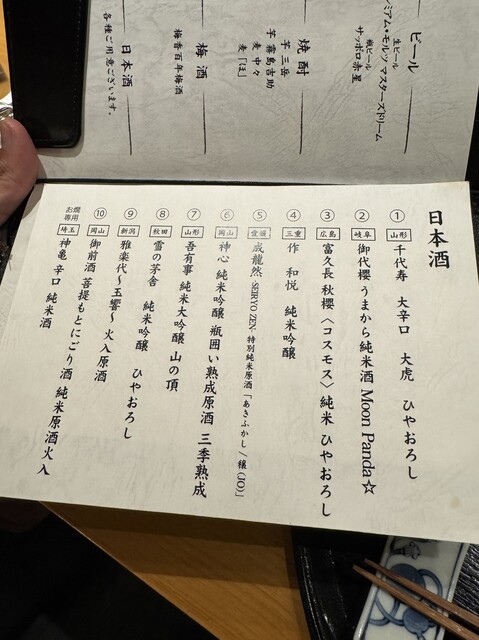 ビール
生ビール
ミアム・モルツ マスターズドリーム
瓶ビール
サッポロ赤星
焼酎
芋 三岳
芋 霧島吉助
麦 中々
麦 「ほ」
梅酒
梅香百年梅酒
日本酒
各種ご用意ございます。
日本酒
① 山形 千代寿 大辛口 大虎 ひやおろし
② 岐阜 御代櫻 うまから純米酒 Moon Panda☆
③ 広島 富久長 秋櫻〈コスモス〉 純米 ひやおろし
④ 三重 作 和悦 純米吟醸
⑤ 愛媛 成龍然 -SEIRYO ZEN- 特別純米原酒 「あきふかし / 穣(JO)」
⑥ 岡山 神心 純米吟醸 瓶囲い熟成原酒 三季熟成
⑦ 山形 吾有事 純米大吟醸 山の頂
⑧ 秋田 雪の茅舎 純米吟醸 ひやおろし
⑨ 新潟 雅楽代〜玉響〜 火入原酒
⑩ 岡山 御前酒 菩提もとにごり酒 純米原酒火入
お燗専用 埼玉 神亀 辛口 純米酒